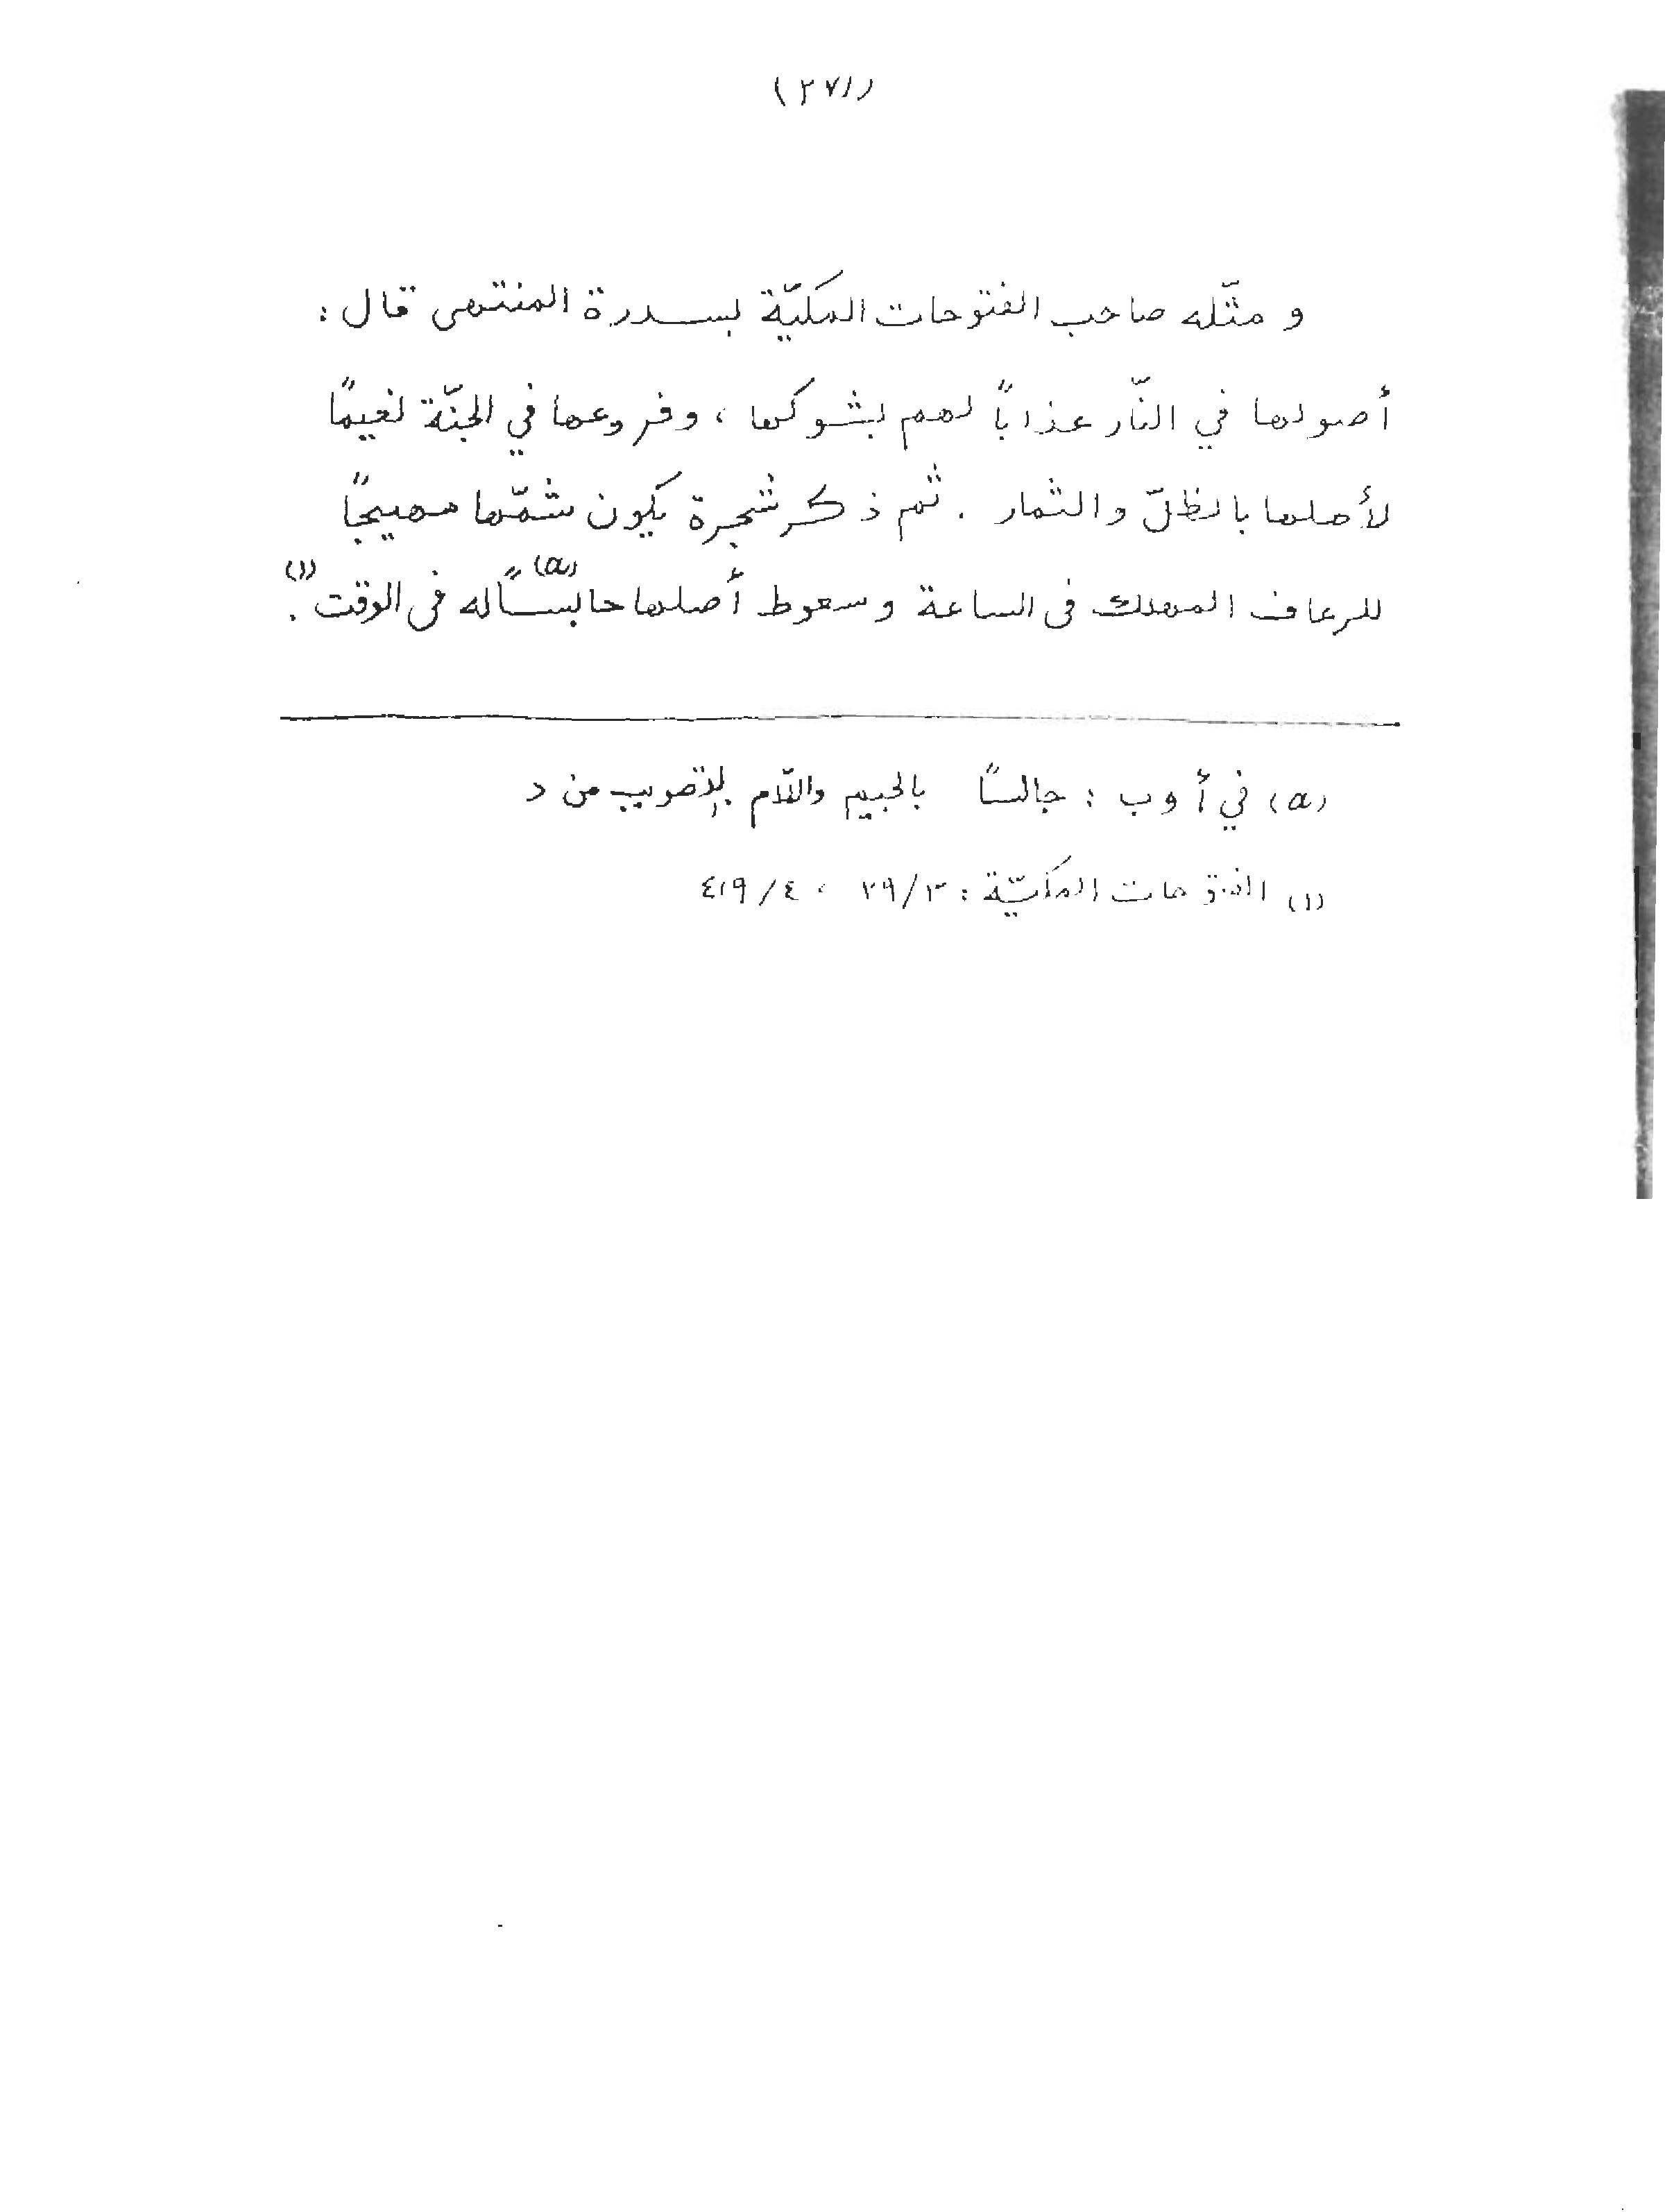 (٢٧١)
و مثّله صاحب الفتوحات المكيّة بسدرة المنتهى قال :
أصولها في النّار عذاباً لهم بشوكها ، وفروعها في الجنّة نعيمًا
لأهلها بالظلّ والثمار . ثم ذكر شجرة يكون شمّها مهيجًا
للرعاف المهلك فى الساعة وسعوط أصلها حابسًا(a) له فى الوقت(١) .
(a) في أ وب : جالسًا بالجيم واللّام والتصويب من د
(١) الفتوحات المكيّة : ٣/٢٩ ، ٤/٤١٩